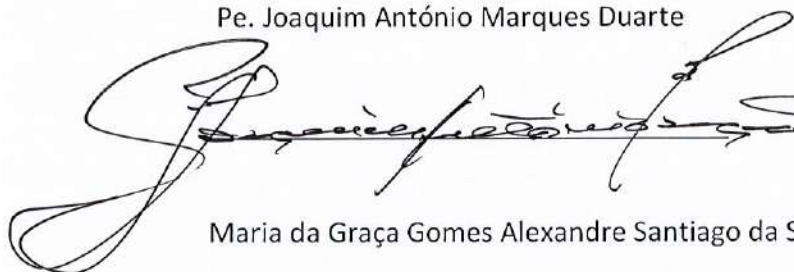 Pe. Joaquim António Marques Duarte
Maria da Graça Gomes Alexandre Santiago da S